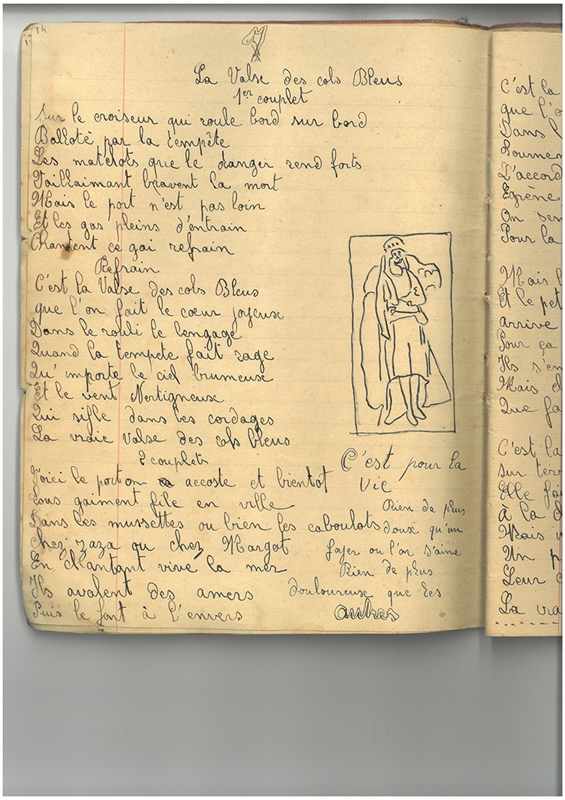 La Valse des cols Bleus
1er couplet
Sur le croiseur qui roule bord sur bord
Balloté par la tempête
Les matelots que le danger rend forts
Vaillaimant bravent la mort
Mais le port n'est pas loin
Et les gas pleins d'entrain
Chantent ce gai refrain
Refrain
C'est la Valse des cols Bleus
que l'on fait le cœur joyeuse
Dans le rouli le tengage
Quand la tempete fait rage
Qu'importe le ciel brumeuse
Et le vent Vertigneuse
Qui sifle dans les cordages
La vraie valse des cols bleus
2 couplets
Voici le port on accoste et bientot
Tous gaiment file en ville
Dans les mussettes ou bien les caboulots
Chez zaza ou chez Margot
En chantant vive la mer
Ils avalent des amers
Puis le font à l'envers
C'est pour la
Vie
Rien de plus
doux qu'un
foyer ou l'on s'aime
Rien de plus
douloureuse que les
autres
C'est la
que l'o
Dans l
Tournen
L'accord
Eprène
On sen
Pour la
Mais l
Et le pet
arrive
Pour ça
Ils s'en
Mais el
Que fa
C'est la
sur terr
Elle fai
à la d
Mais v
Un p
Leur c
La vra